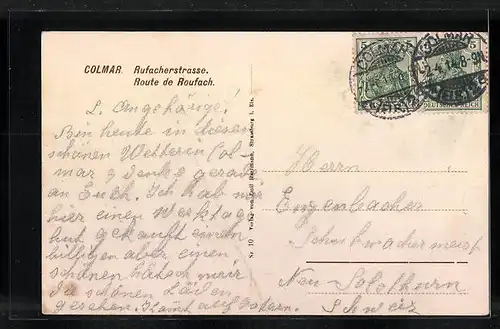 COLMAR. Rufacherstrasse.
Route de Roufach.
L. Angehörige!
Bin heute in diesen
schönen Wetter in Col-
mar & denke gerade
an Euch. Ich hab mir
hier einen Werktag
hut gekauft einen
billigen aber einen
schönen hätsch mir
die schönen Läden
gesehen.
Nr 10 Verlag von Strassburg i. Els.
Herrn
Enzenbacher
Schuhmachermeist
Neu-Solothurn
Schweiz
5
5
COLMAR
COLMAR
DEUTSCHES REICH